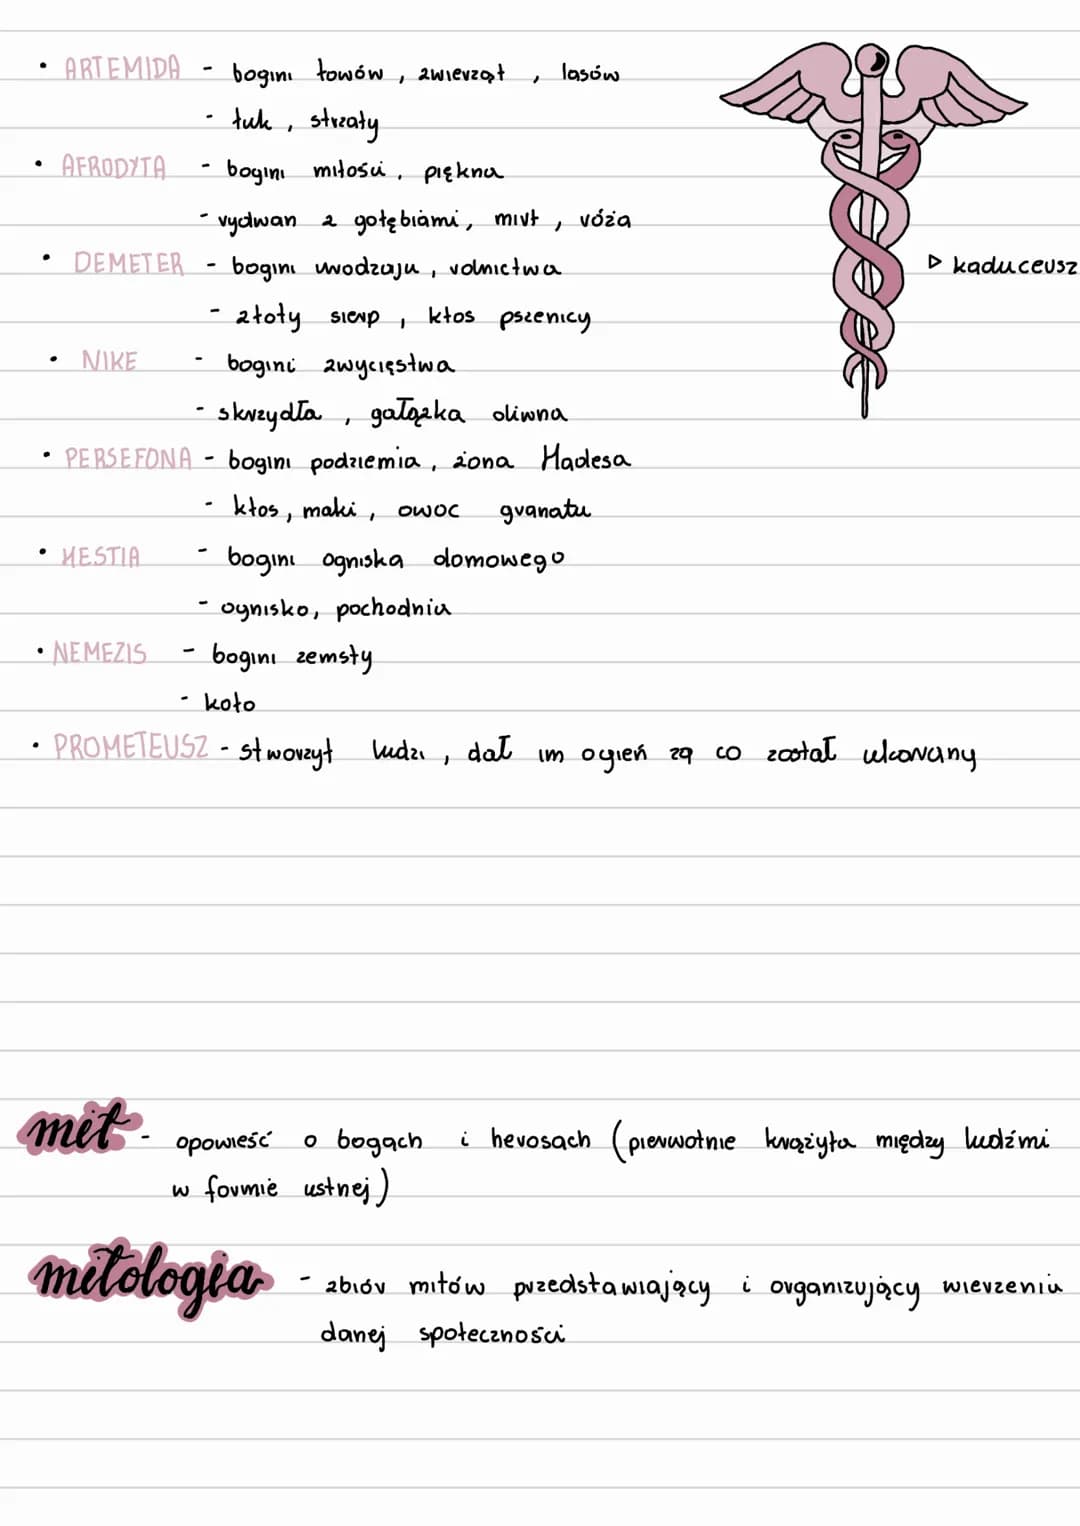 • ARTEMIDA - bogini łowów, zwierząt, lasów
- łuk, strzały
• AFRODYTA - bogini miłości, piękna
- rydwan z gołębiami, mirt, róża
• DEMETER - bogini urodzaju, rolnictwa
- złoty sierp, kłos pszenicy
▷ kaduceusz
• NIKE - bogini zwycięstwa
- skrzydła, gałązka oliwna
• PERSEFONA - bogini podziemia, żona Hadesa
- kłos, maki, owoc granatu
• HESTIA - bogini ogniska domowego
- ognisko, pochodnia
• NEMEZIS - bogini zemsty
- koło
• PROMETEUSZ - stworzył ludzi, dał im ogień zą co został ukarany
mit - opowieść o bogach i herosach (pierwotnie krążyła między ludźmi
w formie ustnej)
mitologia - zbiór mitów przedstawiający i organizujący wierzenia
danej społeczności